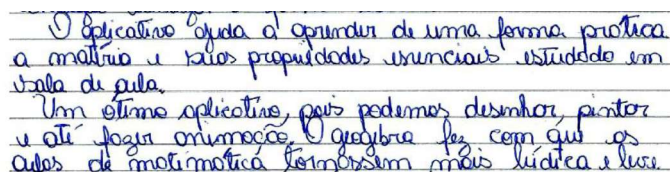 O aplicativo ajuda a aprender de uma forma prática
a matéria e suas propriedades essenciais estudado em
sala de aula.
Um ótimo aplicativo, pois podemos desenhar, pintar
e até fazer animação. O geogebra fez com que os
aulas de matemática tornassem mais lúdica e livre.